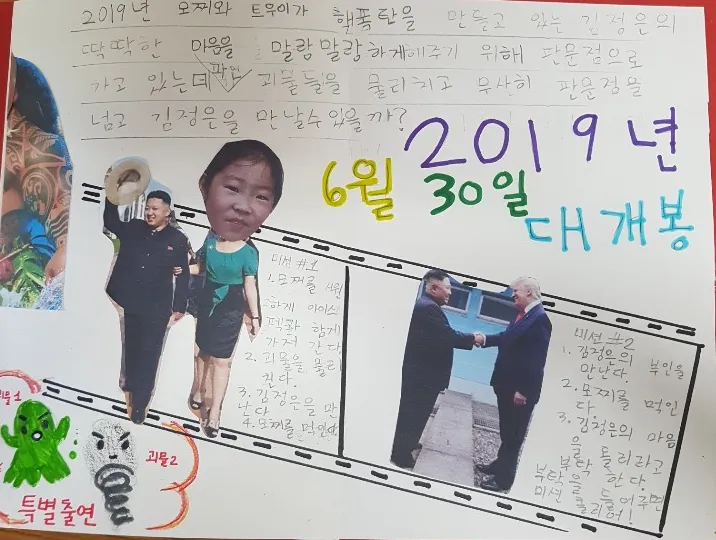 2019년 모찌와 트무이가 핵폭탄을 만들고 있는 김정은의
딱딱한 마음을 말랑말랑하게해주기 위해 판문점으로
가고 있는데 과연 괴물들을 물리치고 무사히 판문점을
넘고 김정은을 만날수 있을까?
2019년
6월 30일
대개봉
미션 #1
1. 모찌를 시원
하게 아이스
팩과 함께
가져 간다
2. 괴물을 물리
친다.
3. 김정은을 만
난다
4. 모찌를 먹인다
미션 #2
1. 김정은의 부인을
만난다.
2. 모찌를 먹인
다
3. 김정은의 마음
을 돌리라고
부탁 한다.
부탁을 들어주면
미션 클리어!
괴물1
괴물2
특별출연